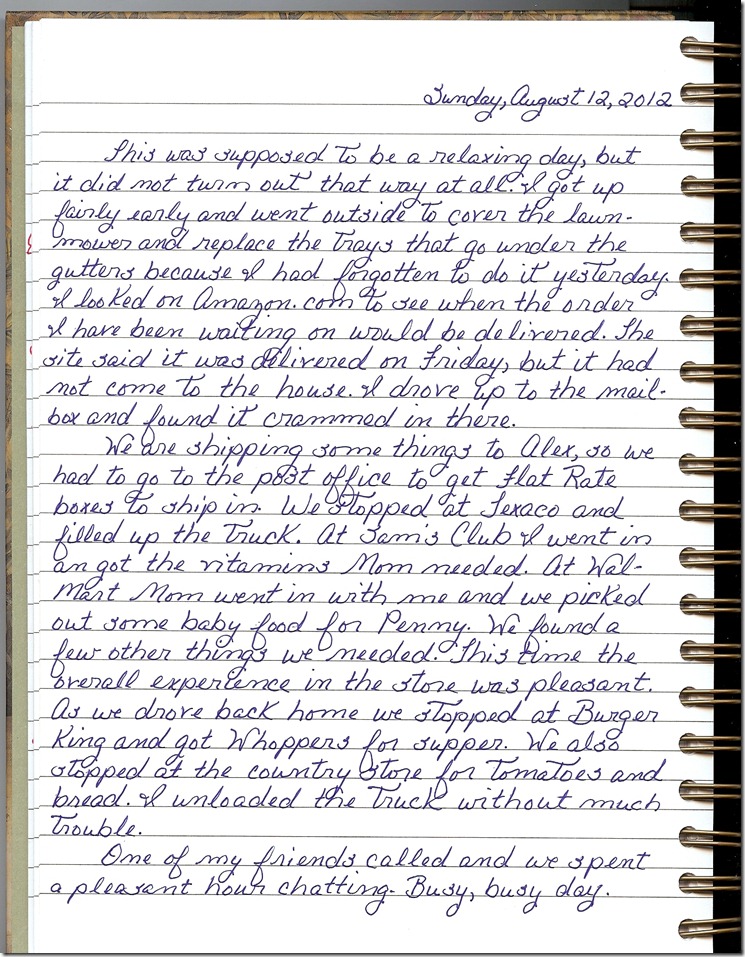 Sunday, August 12, 2012
This was supposed to be a relaxing day, but
it did not turn out that way at all. I got up
fairly early and went outside to cover the lawn-
mower and replace the trays that go under the
gutters because I had forgotten to do it yesterday.
I looked on Amazon.com to see when the order
I have been waiting on would be delivered. The
site said it was delivered on Friday, but it had
not come to the house. I drove up to the mail-
box and found it crammed in there.
We are shipping some things to Alex, so we
had to go to the post office to get Flat Rate
boxes to ship in. We stopped at Texaco and
filled up the truck. At Sam's Club I went in
an got the vitamins Mom needed. At Wal-
Mart Mom went in with me and we picked
out some baby food for Penny. We found a
few other things we needed. This time the
overall experience in the store was pleasant.
As we drove back home we stopped at Burger
King and got Whoppers for supper. We also
stopped at the country store for tomatoes and
bread. I unloaded the truck without much
trouble.
One of my friends called and we spent
a pleasant hour chatting. Busy, busy day.